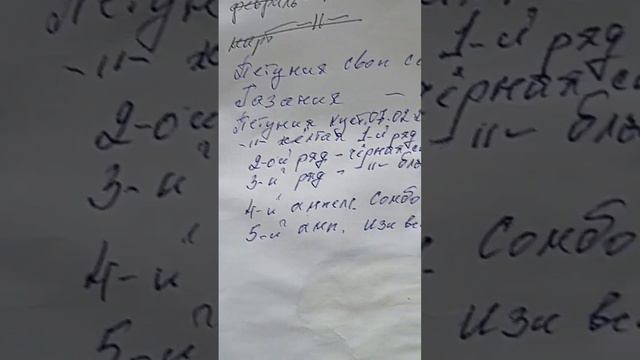 февраль
март —"—
Петуния свои се
Газания —
Петуния куст. 07.02.2
-"- жёлтая 1-й ряд
2-ой ряд - чёрная с
3-й ряд - -"- бла
4-й ампел. Сомбо
5-й амп. Изи ве